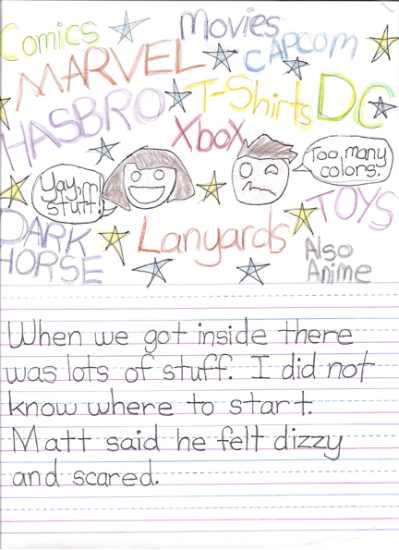 Comics
Movies
MARVEL
CAPCOM
HASBRO
T-Shirts
DC
Xbox
Yay,
stuff!
Too many
colors.
DARK
HORSE
Lanyards
TOYS
Also
Anime
When we got inside there
was lots of stuff. I did not
know where to start.
Matt said he felt dizzy
and scared.